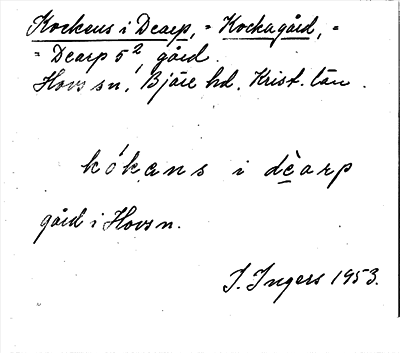 Kockens i Dearp, = Kockagård, =
= Dearp 5², gård.
Hovs sn, Bjäre hd. Krist. län.
kókɑns i dèarp
gård i Hovsn.
I. Ingers 1953.